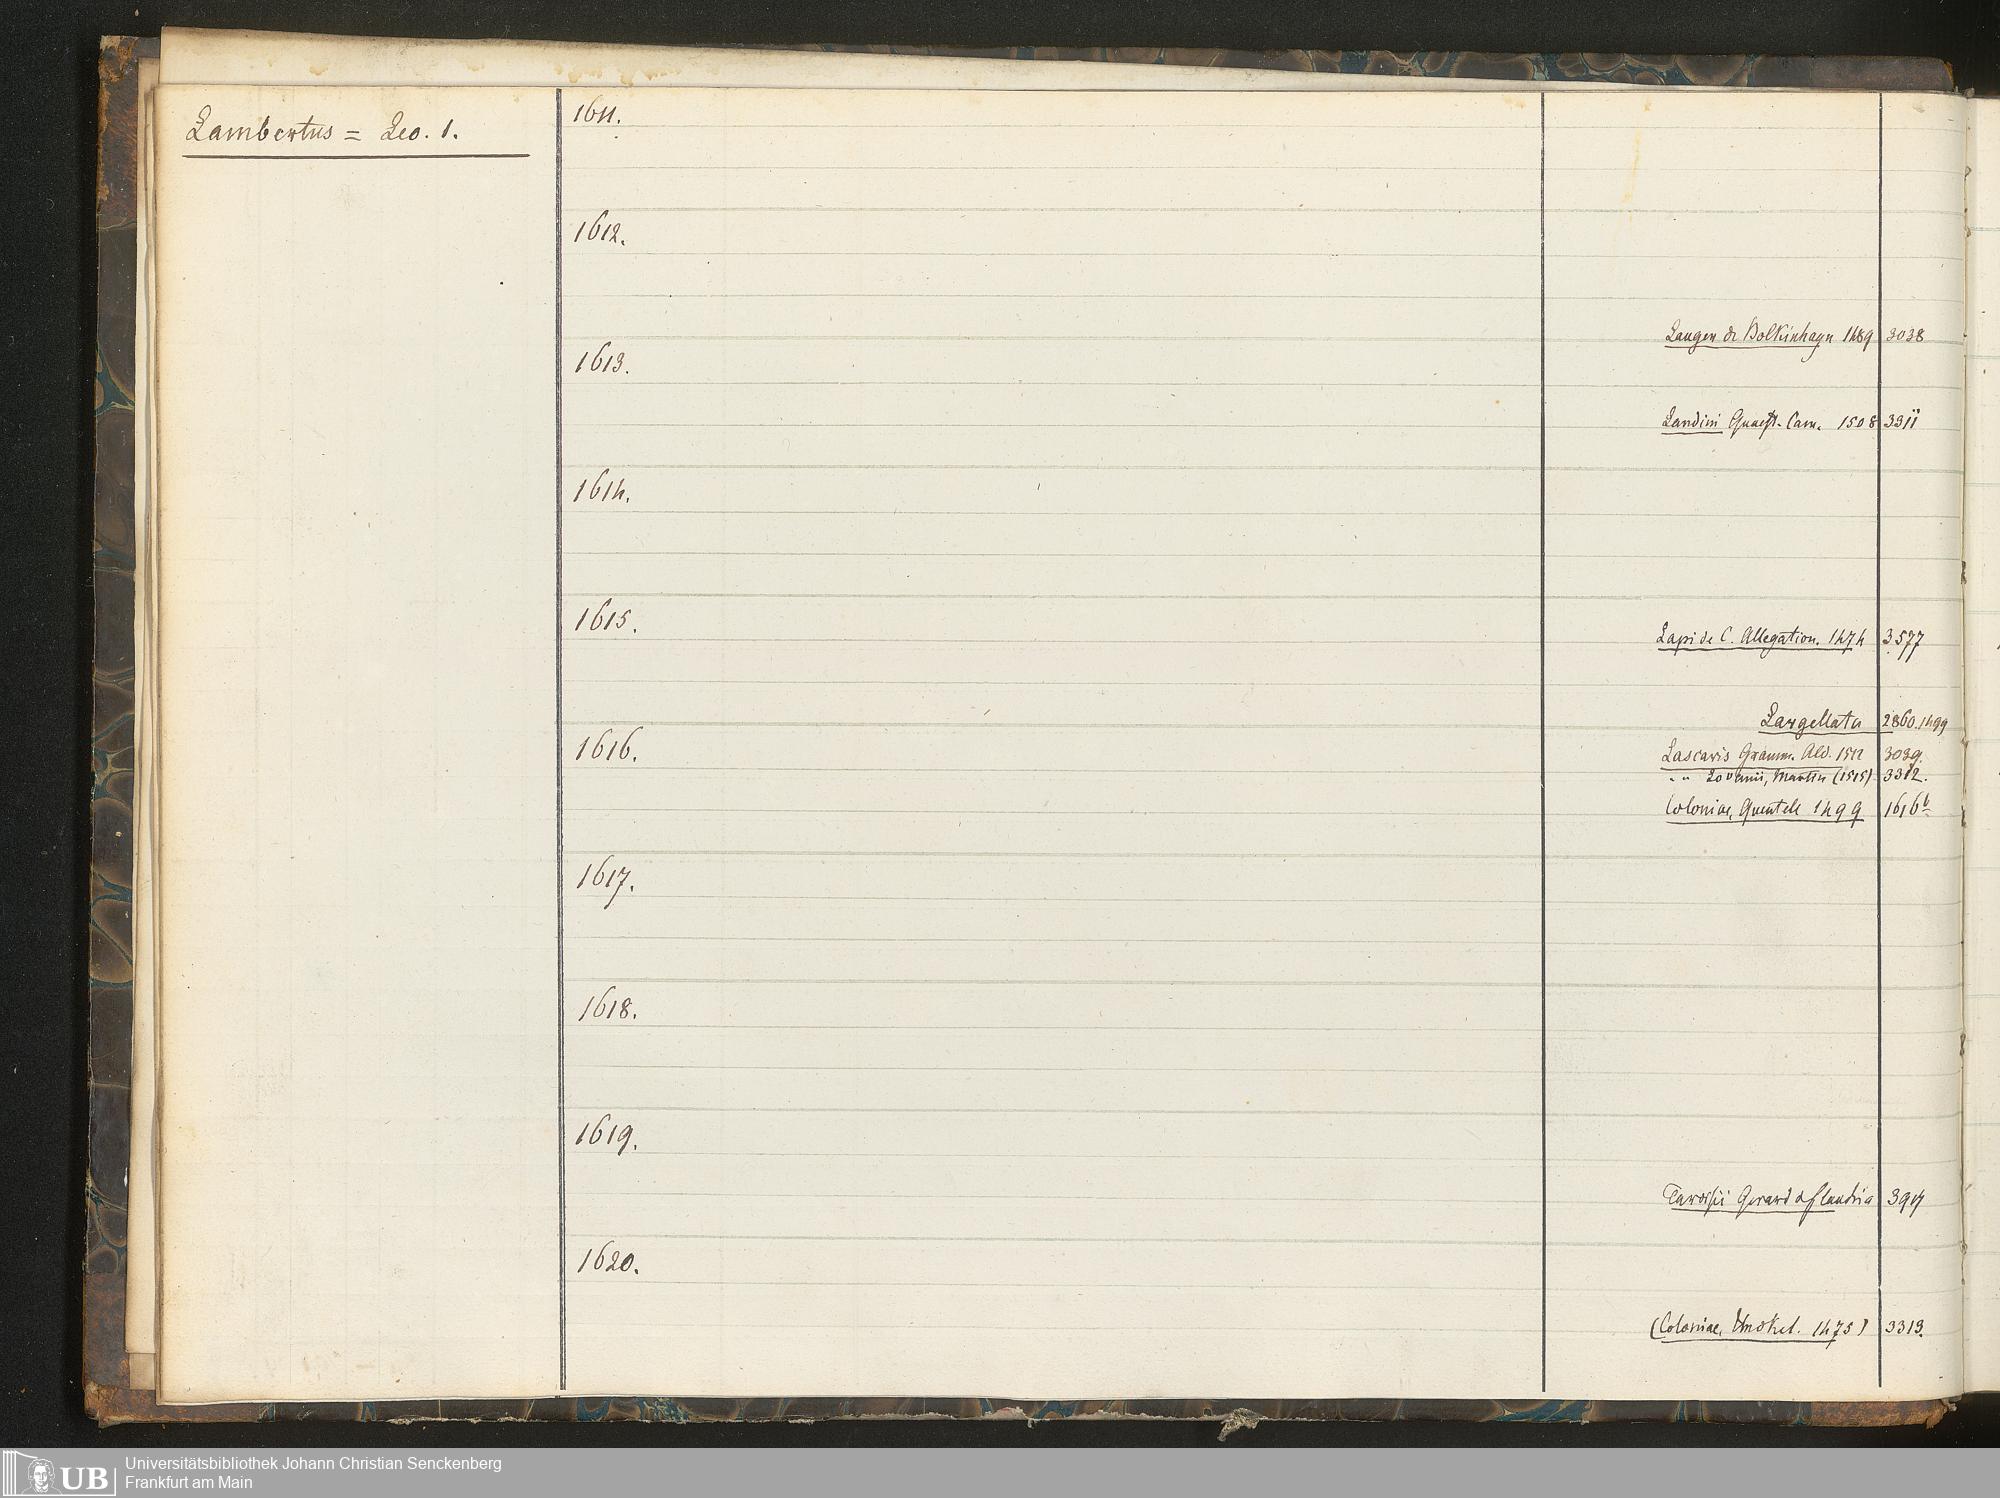 Lambertus = Leo. 1.
1611.
1612.
Langen de Bolkinhagn 1489 3038
1613.
Landini Quaest. Cam. 1508 3311
1614.
1615.
Lapide C. Allegation. 1474 3577
Largellata 2860.1499
1616.
Lascaris Gramm. Ald. 1512 3039.
" " Lovanii, Martin (1515) 3312.
Coloniae, Quentell 1499 1616b
1617.
1618.
1619.
Tarvisii Gerard d Flandria
1620.
(Coloniae, 1475) 3313.
UB
Universitätsbibliothek Johann Christian Senckenberg
Frankfurt am Main